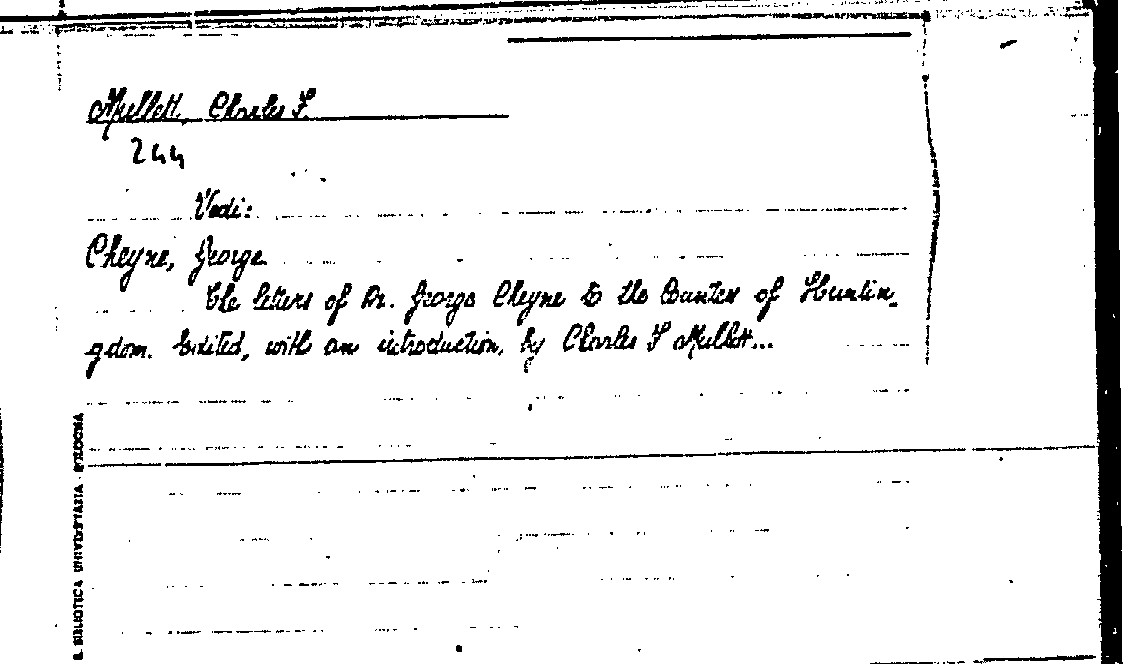 Mullett, Charles F.
244
Vedi:
Cheyne, George
The letters of Dr. George Cheyne to the Countess of Huntin-
gdom. Edited, with an introduction, by Charles F Mullett...
R. BIBLIOTECA UNIVERSITARIA - BOLOGNA